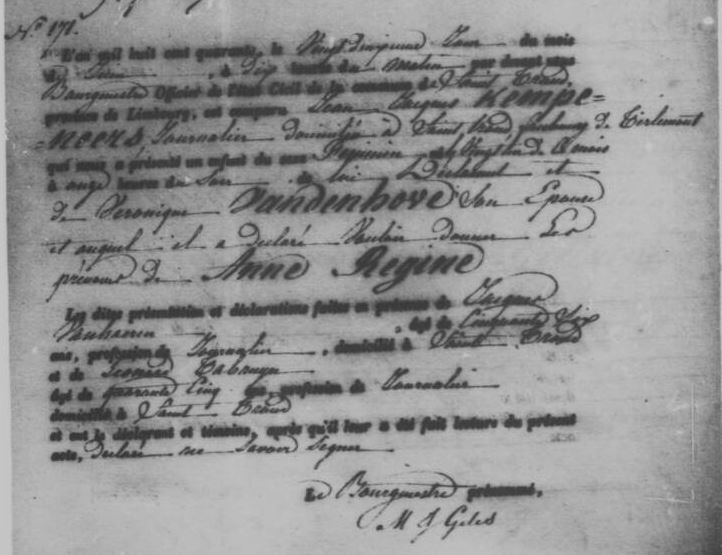 N° 171.
L'an mil huit cent quarante, le Vingt deuxieme Jour du mois
de Juin, à Dix heures du matin par devant nous
Bourgmestre Officier de l'Etat Civil de la commune de Saint Trond,
province de Limbourg, est comparu Jean Jacques Kempe=
neers, Journalier domicilié à Saint Trond faubourg de Tirlemont
qui nous a présenté un enfant du sexe Feminin
à onze heures du Soir de lui Déclarant et
de Veronique Vandenhove Son Epouse
et auquel il a declaré Vouloir donner Les
prénoms de Anne Regine
Les dites présentation et déclarations faites en présence de Jacques
, âgé de Cinquante Six
ans, profession de Journalier, domicilié à Saint Trond
et de
âgé de quarante Cinq ans, profession de Journalier
domicilié à Saint Trond
et ont le déclarant et témoins, après qu'il leur a été fait lecture du présent
acte, declaré ne Savoir Signer
Le Bourgmestre prénommé,